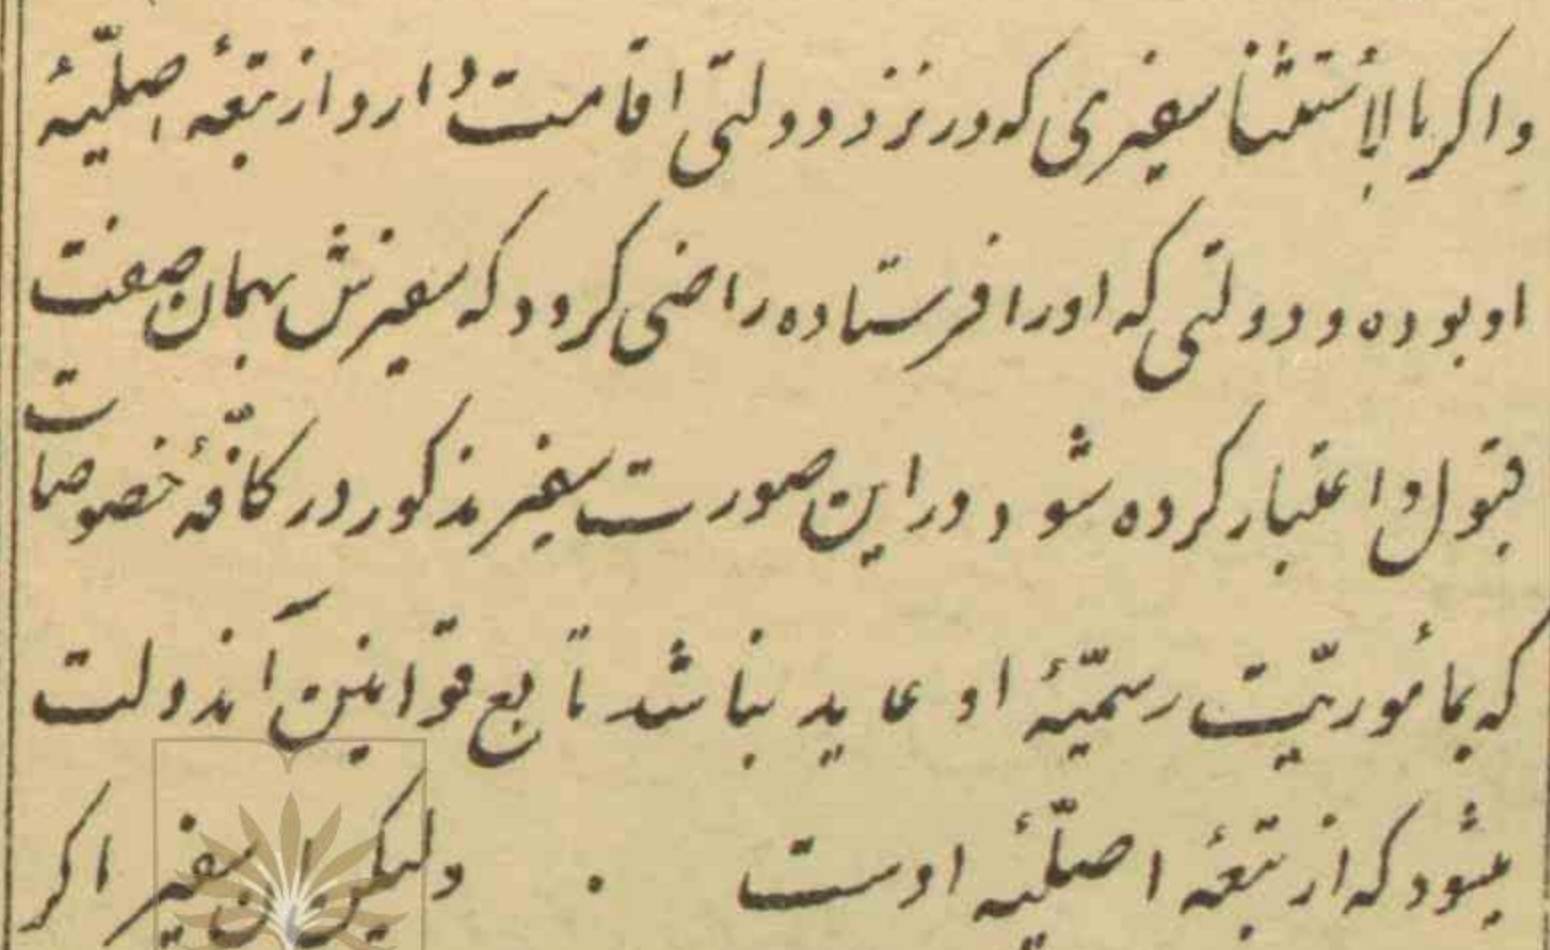 و اکر بالأستثنا سفیری که در نزد دولتی اقامت دارد از تبعهٔ اصلیّهٔ
او بوده و دولتی که اورا فرستاده راضی کردد که سفیرش بهمان صفت
قبول و اعتبار کرده شود در این صورت سفیر مذکور در کافّهٔ خصوصات
که بمأموریّت رسمیّهٔ او عاید نباشد تابع قوّانین آندولت
میشود که از تبعهٔ اصلیّهٔ اوست . ولیکن این سفیر اکر